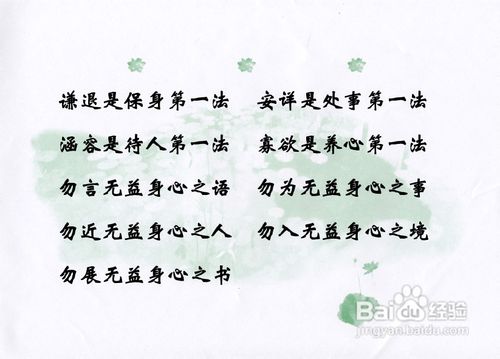 谦退是保身第一法 安详是处事第一法
涵容是待人第一法 寡欲是养心第一法
勿言无益身心之语 勿为无益身心之事
勿近无益身心之人 勿入无益身心之境
勿展无益身心之书
Baidu经验
jingyan.baidu.com